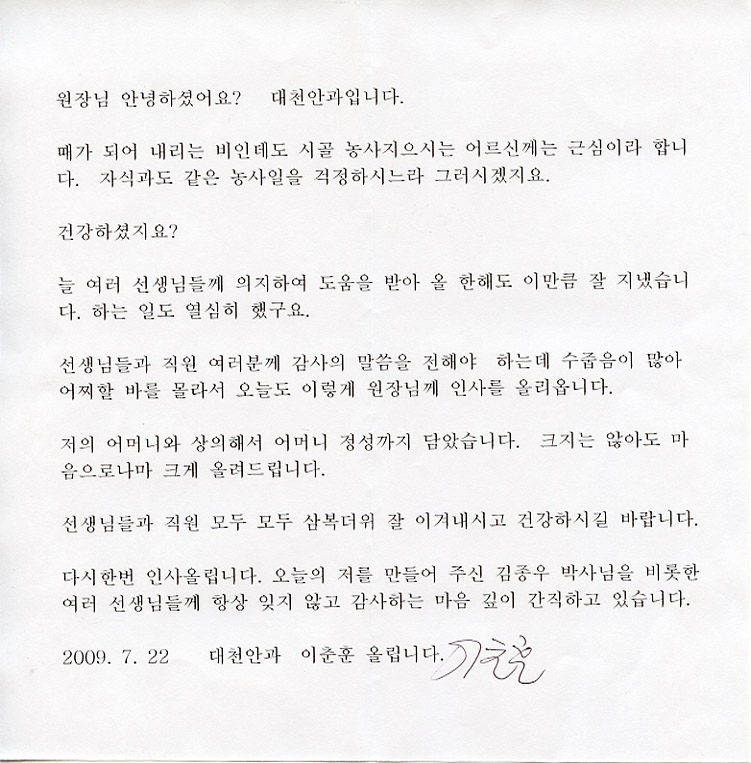 원장님 안녕하셨어요?   대천안과입니다.
때가 되어 내리는 비인데도 시골 농사지으시는 어르신께는 근심이라 합니
다.  자식과도 같은 농사일을 걱정하시느라 그러시겠지요.
건강하셨지요?
늘 여러 선생님들께 의지하여 도움을 받아 올 한해도 이만큼 잘 지냈습니
다. 하는 일도 열심히 했구요.
선생님들과 직원 여러분께 감사의 말씀을 전해야  하는데 수줍음이 많아
어찌할 바를 몰라서 오늘도 이렇게 원장님께 인사를 올리옵니다.
저의 어머니와 상의해서 어머니 정성까지 담았습니다.  크지는 않아도 마
음으로나마 크게 올려드립니다.
선생님들과 직원 모두 모두 삼복더위 잘 이겨내시고 건강하시길 바랍니다.
다시한번 인사올립니다. 오늘의 저를 만들어 주신 김종우 박사님을 비롯한
여러 선생님들께 항상 잊지 않고 감사하는 마음 깊이 간직하고 있습니다.
2009. 7. 22    대천안과  이춘훈 올립니다. 이춘훈